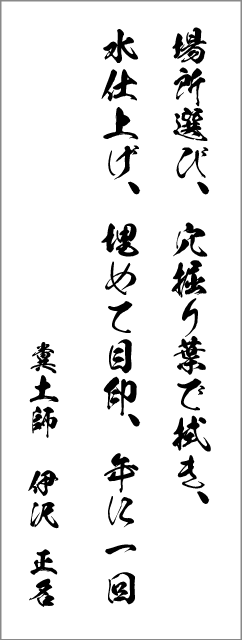 場所選び、穴掘り葉で拭き、
水仕上げ、埋めて目印、年に一回
糞土師 伊沢 正名